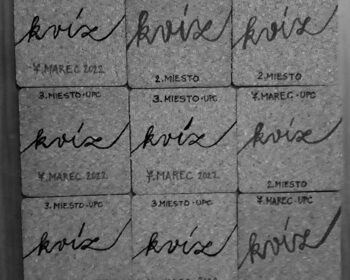 kvíz
7. MAREC 2022
kvíz
2. MIESTO
kvíz
2. MIESTO
3. MIESTO·UPC
kvíz
7. MAREC 2022
3. MIESTO·UPC
kvíz
7. MAREC 2022
7. MAREC·UPC
kvíz
2. MIESTO
3. MIESTO·UPC
kvíz
3. MIESTO·UPC
kvíz
7. MAREC·UPC
kvíz